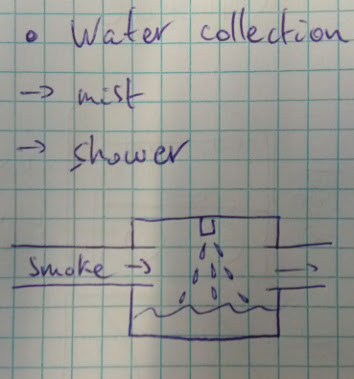 • Water collection
→ mist
→ shower
smoke →
→